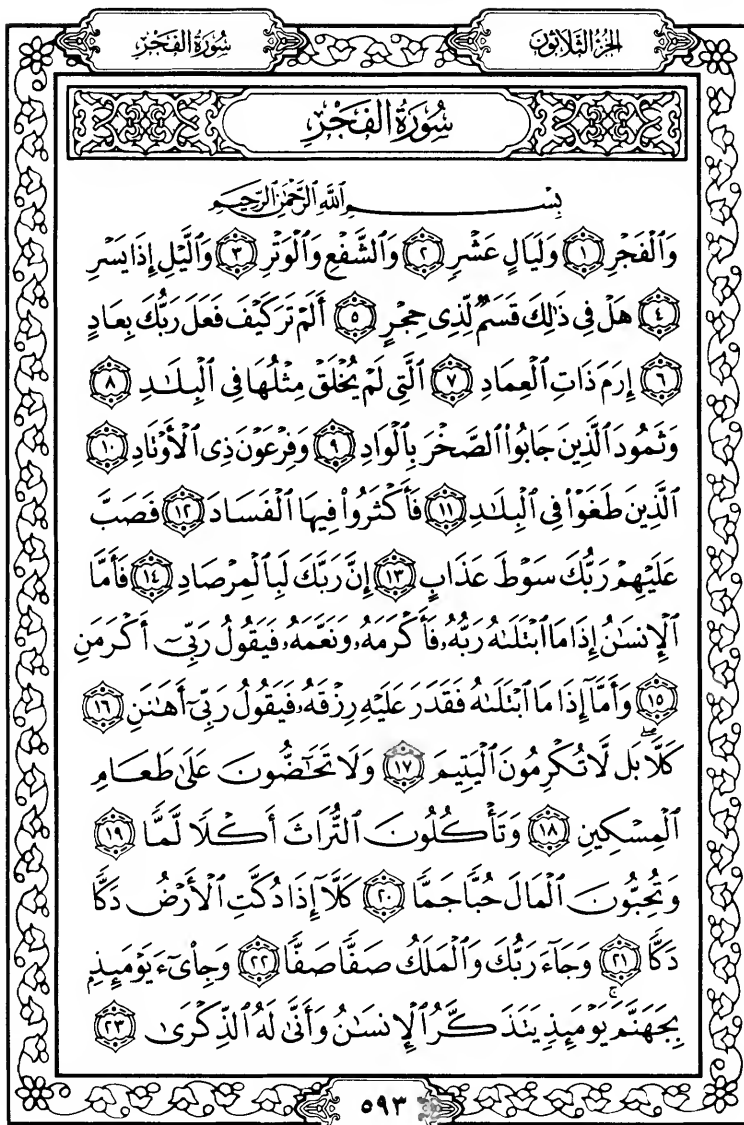 الجزء الثلاثون
سُورَةُ الفَجْرِ
سُورَةُ الفَجْرِ
بِسْمِ ٱللَّهِ ٱلرَّحْمَٰنِ ٱلرَّحِيمِ
وَٱلْفَجْرِ ١ وَلَيَالٍ عَشْرٍ ٢ وَٱلشَّفْعِ وَٱلْوَتْرِ ٣ وَٱلَّيْلِ إِذَا يَسْرِ
٤ هَلْ فِى ذَٰلِكَ قَسَمٌ لِّذِى حِجْرٍ ٥ أَلَمْ تَرَ كَيْفَ فَعَلَ رَبُّكَ بِعَادٍ
٦ إِرَمَ ذَاتِ ٱلْعِمَادِ ٧ ٱلَّتِى لَمْ يُخْلَقْ مِثْلُهَا فِى ٱلْبِلَٰدِ ٨
وَثَمُودَ ٱلَّذِينَ جَابُوا۟ ٱلصَّخْرَ بِٱلْوَادِ ٩ وَفِرْعَوْنَ ذِى ٱلْأَوْتَادِ ١٠
ٱلَّذِينَ طَغَوْا۟ فِى ٱلْبِلَٰدِ ١١ فَأَكْثَرُوا۟ فِيهَا ٱلْفَسَادَ ١٢ فَصَبَّ
عَلَيْهِمْ رَبُّكَ سَوْطَ عَذَابٍ ١٣ إِنَّ رَبَّكَ لَبِٱلْمِرْصَادِ ١٤ فَأَمَّا
ٱلْإِنسَٰنُ إِذَا مَا ٱبْتَلَىٰهُ رَبُّهُۥ فَأَكْرَمَهُۥ وَنَعَّمَهُۥ فَيَقُولُ رَبِّىٓ أَكْرَمَنِ
١٥ وَأَمَّآ إِذَا مَا ٱبْتَلَىٰهُ فَقَدَرَ عَلَيْهِ رِزْقَهُۥ فَيَقُولُ رَبِّىٓ أَهَٰنَنِ ١٦
كَلَّا ۖ بَل لَّا تُكْرِمُونَ ٱلْيَتِيمَ ١٧ وَلَا تَحَٰٓضُّونَ عَلَىٰ طَعَامِ
ٱلْمِسْكِينِ ١٨ وَتَأْكُلُونَ ٱلتُّرَاثَ أَكْلًا لَّمًّا ١٩
وَتُحِبُّونَ ٱلْمَالَ حُبًّا جَمًّا ٢٠ كَلَّآ إِذَا دُكَّتِ ٱلْأَرْضُ دَكًّا
دَكًّا ٢١ وَجَآءَ رَبُّكَ وَٱلْمَلَكُ صَفًّا صَفًّا ٢٢ وَجِا۟ىٓءَ يَوْمَئِذٍۭ
بِجَهَنَّمَ ۚ يَوْمَئِذٍ يَتَذَكَّرُ ٱلْإِنسَٰنُ وَأَنَّىٰ لَهُ ٱلذِّكْرَىٰ ٢٣
٥٩٣